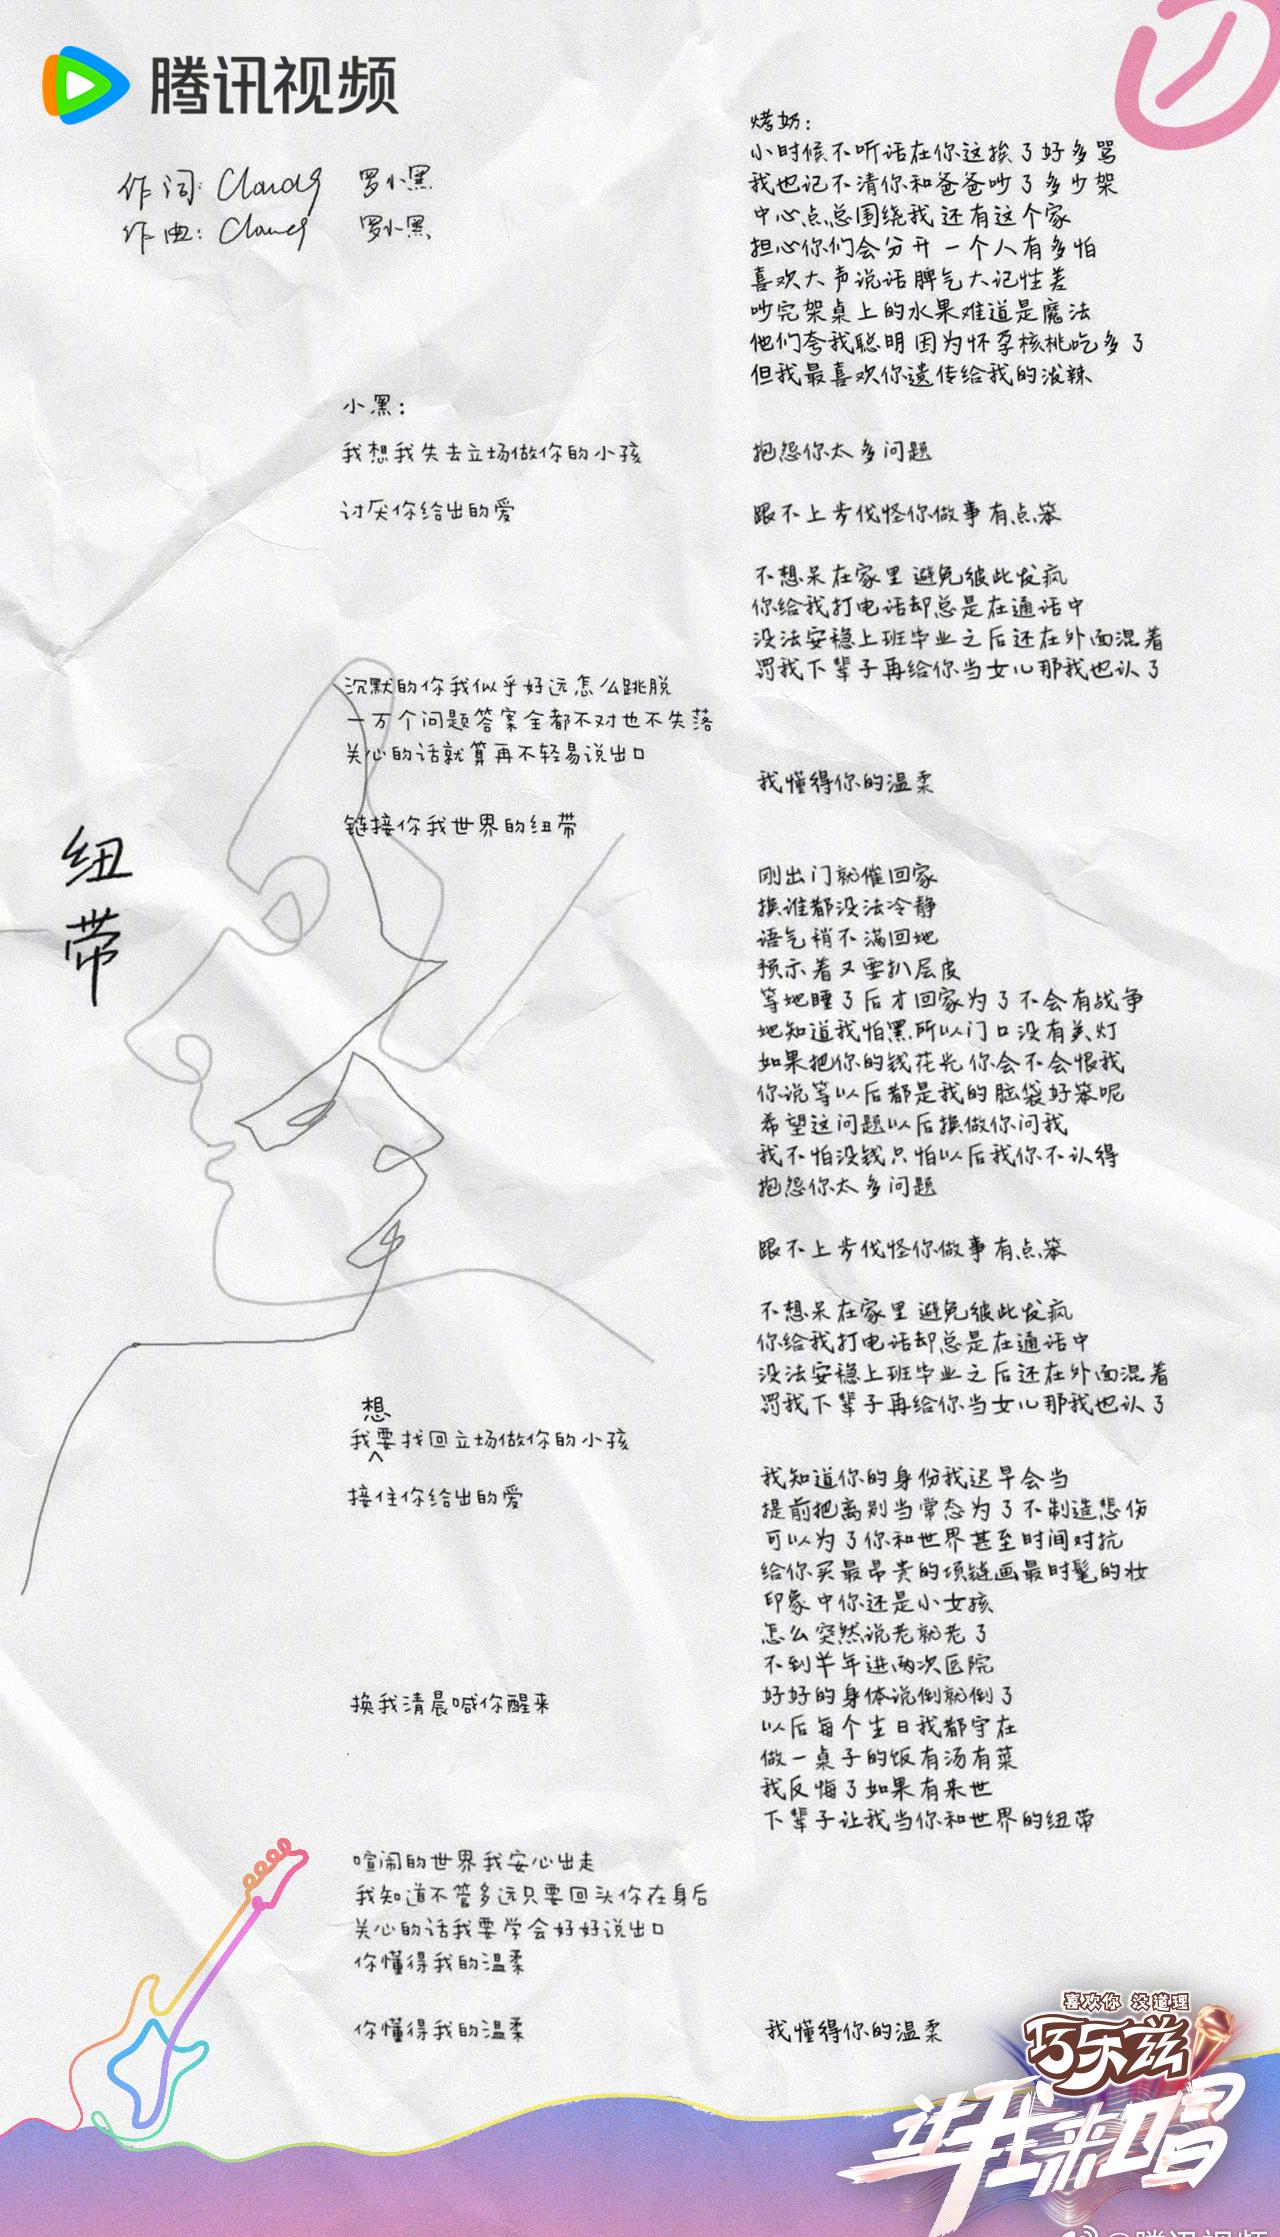 腾讯视频
作词: Cloud9 罗小黑
作曲: Cloud9 罗小黑
纽带
小黑:
我想我失去立场做你的小孩
讨厌你给出的爱
沉默的你我似乎好远怎么跳脱
一万个问题答案全都不对也不失落
关心的话就算再不轻易说出口
链接你我世界的纽带
想
我要找回立场做你的小孩
接住你给出的爱
换我清晨喊你醒来
喧闹的世界我安心出走
我知道不管多远只要回头你在身后
关心的话我要学会好好说出口
你懂得我的温柔
你懂得我的温柔
烤奶:
小时候不听话在你这挨了好多骂
我也记不清你和爸爸吵了多少架
中心点总围绕我 还有这个家
担心你们会分开 一个人有多怕
喜欢大声说话脾气大记性差
吵完架桌上的水果难道是魔法
他们夸我聪明因为怀孕核桃吃多了
但我最喜欢你遗传给我的泼辣
抱怨你太多问题
跟不上步伐怪你做事有点笨
不想呆在家里 避免彼此发疯
你给我打电话却总是在通话中
没法安稳上班毕业之后还在外面混着
罚我下辈子再给你当女儿那我也认了
我懂得你的温柔
刚出门就催回家
换谁都没法冷静
语气稍不满回她
预示着又要扒层皮
等她睡了后才回家为了不会有战争
她知道我怕黑所以门口没有关灯
如果把你的钱花光你会不会恨我
你说等以后都是我的脑袋好笨呢
希望这问题以后换做你问我
我不怕没钱只怕以后我你不认得
抱怨你太多问题
跟不上步伐怪你做事有点笨
不想呆在家里 避免彼此发疯
你给我打电话却总是在通话中
没法安稳上班毕业之后还在外面混着
罚我下辈子再给你当女儿那我也认了
我知道你的身份我迟早会当
提前把离别当常态为了不制造悲伤
可以为了你和世界甚至时间对抗
给你买最昂贵的项链画最时髦的妆
印象中你还是小女孩
怎么突然说老就老了
不到半年进两次医院
好好的身体说倒就倒了
以后每个生日我都守在
做一桌子的饭有汤有菜
我反悔了如果有来世
下辈子让我当你和世界的纽带
我懂得你的温柔
喜欢你 没道理
巧乐兹
斗我来唱
@腾讯视频